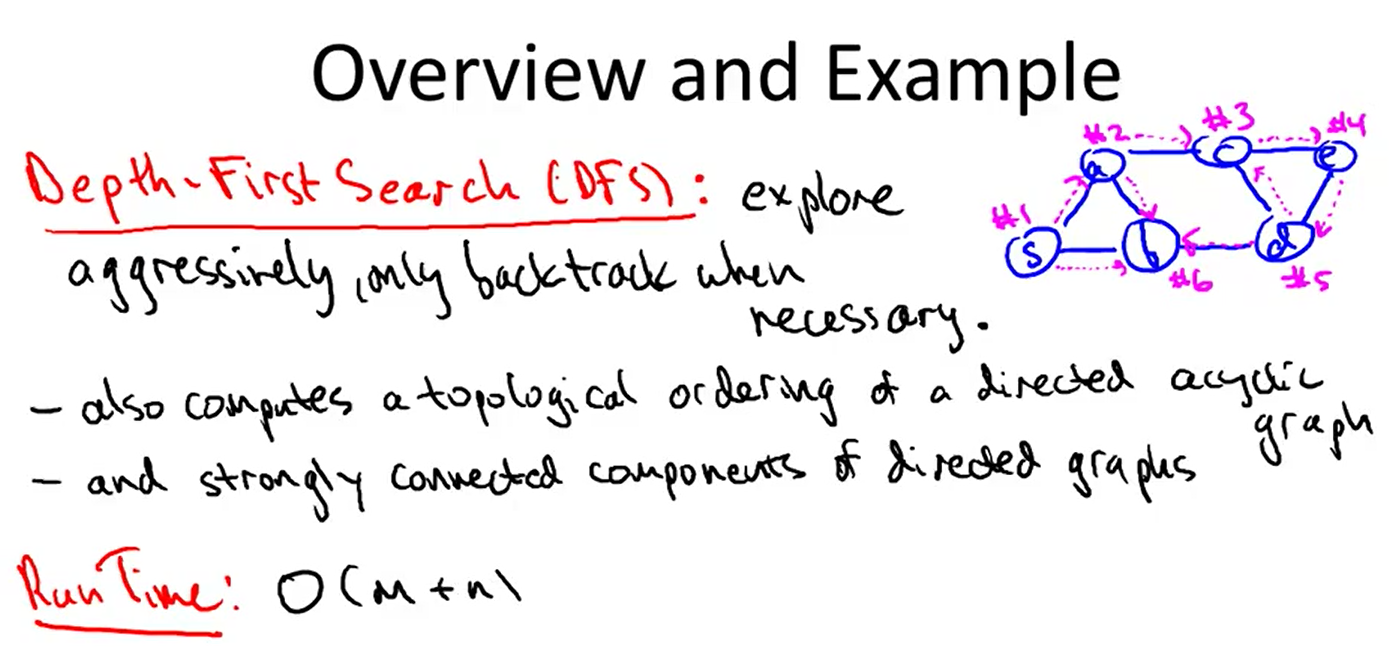 Overview and Example
#2 #3 #4
a c e
Depth-First Search (DFS): explore
#1
s b d
#6 #5
aggressively, only backtrack when
necessary.
- also computes a topological ordering of a directed acyclic
graph
- and strongly connected components of directed graphs
Run Time: O(m+n)